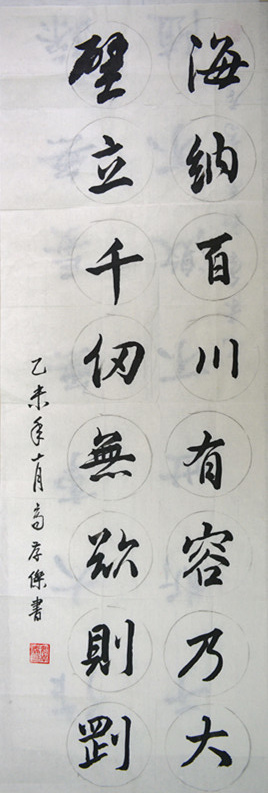 海納百川有容乃大
壁立千仞無欲則剛
乙未年十月高存傑書